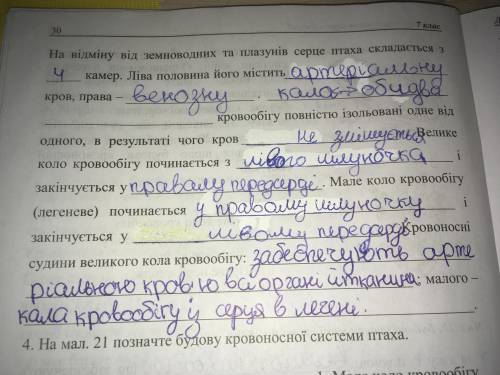 30 7 клас
На відміну від земноводних та плазунів серце птаха складається з
4 камер. Ліва половина його містить артеріальну
кров, права – венозну . обидва
кровообігу повністю ізольовані одне від
одного, в результаті чого кров не змішується Велике
коло кровообігу починається з лівого шлуночка і
закінчується у правому передсерді. Мале коло кровообігу
(легеневе) починається у правому шлуночку і
закінчується у лівому передсерді Кровоносні
судини великого кола кровообігу: забеспечують арте
ріальною кров'ю всі органі й тканина; малого –
кола кровообігу із серця в легені.
4. На мал. 21 позначте будову кровоносної системи птаха.
1. Мале коло кровообігу